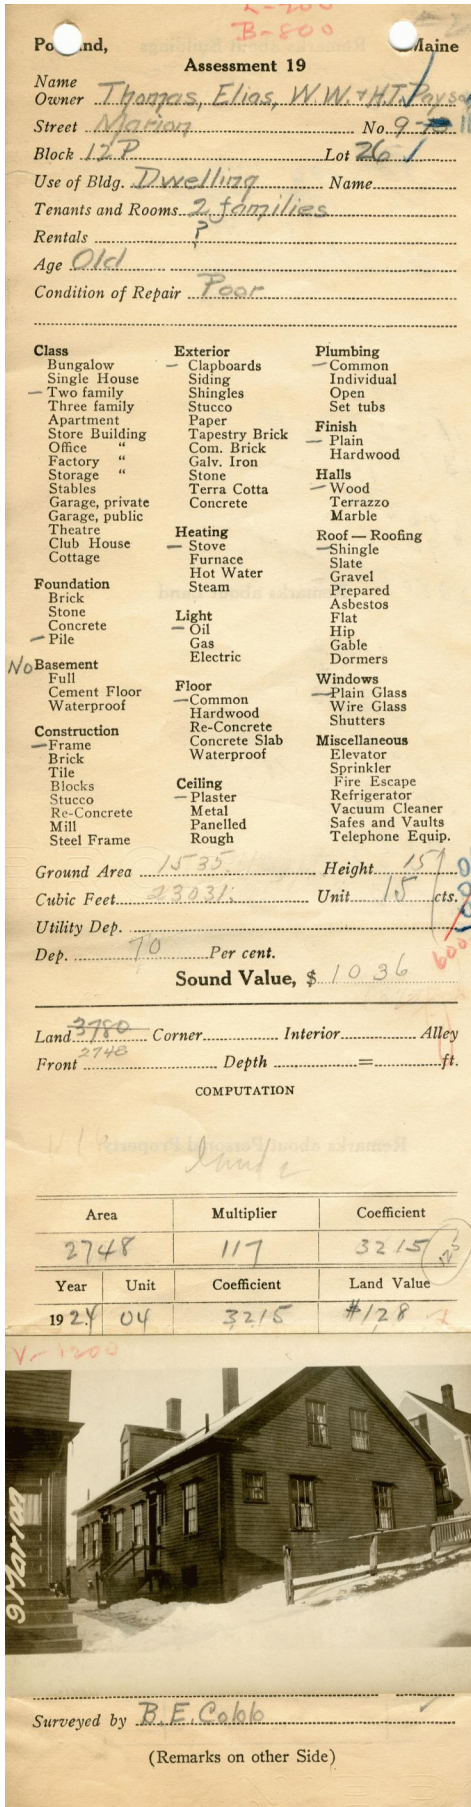 B-800
Portland, Maine
Assessment 19
Name
Owner Thomas, Elias, W.W. + H.T. Payson
Street Marion No. 9-
Block 12P Lot 26
Use of Bldg. Dwelling Name
Tenants and Rooms 2 families
Rentals ?
Age Old
Condition of Repair Poor
Class
Bungalow
Single House
Two family
Three family
Apartment
Store Building
Office "
Factory "
Storage "
Stables
Garage, private
Garage, public
Theatre
Club House
Cottage
Foundation
Brick
Stone
Concrete
Pile
No Basement
Full
Cement Floor
Waterproof
Construction
Frame
Brick
Tile
Blocks
Stucco
Re-Concrete
Mill
Steel Frame
Exterior
Clapboards
Siding
Shingles
Stucco
Paper
Tapestry Brick
Com. Brick
Galv. Iron
Stone
Terra Cotta
Concrete
Heating
Stove
Furnace
Hot Water
Steam
Light
Oil
Gas
Electric
Floor
Common
Hardwood
Re-Concrete
Concrete Slab
Waterproof
Ceiling
Plaster
Metal
Panelled
Rough
Plumbing
Common
Individual
Open
Set tubs
Finish
Plain
Hardwood
Halls
Wood
Terrazzo
Marble
Roof — Roofing
Shingle
Slate
Gravel
Prepared
Asbestos
Flat
Hip
Gable
Dormers
Windows
Plain Glass
Wire Glass
Shutters
Miscellaneous
Elevator
Sprinkler
Fire Escape
Refrigerator
Vacuum Cleaner
Safes and Vaults
Telephone Equip.
Ground Area 1535. Height 15
Cubic Feet 23031. Unit 15 cts.
Utility Dep.
600
Dep. 70 Per cent.
Sound Value, $ 1036
Land 3780 Corner Interior Alley
2748
Front Depth = ft.
COMPUTATION
Area Multiplier Coefficient
2748 117 3215
Year Unit Coefficient Land Value
1924 04 3215 #128
V-1200
9 Marion
Surveyed by B.E. Cobb
(Remarks on other Side)